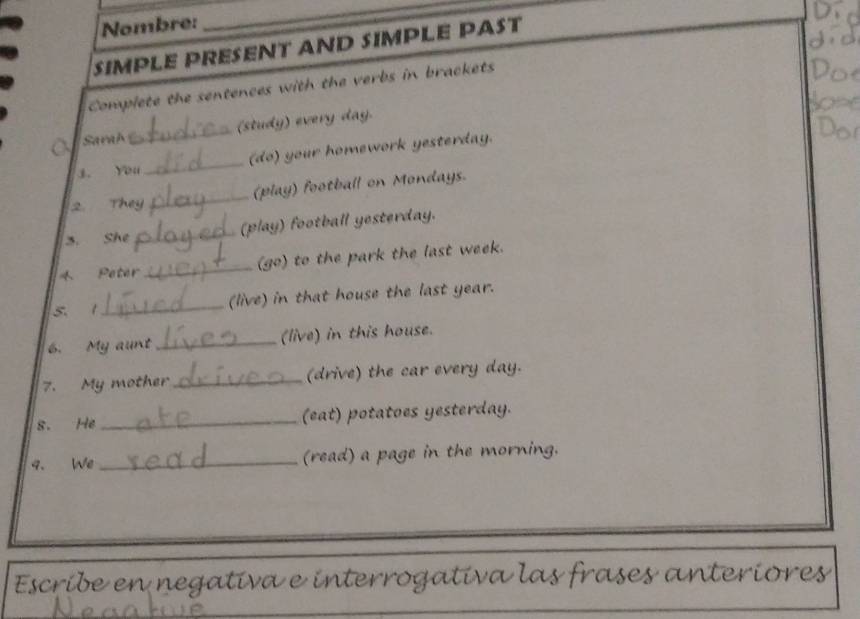 Nombre:
SIMPLE PRESENT AND SIMPLE PAST
Complete the sentences with the verbs in brackets
Sarah studies (study) every day.
1. You did (do) your homework yesterday.
2. They play (play) football on Mondays.
3. She played (play) football yesterday.
4. Peter went (go) to the park the last week.
5. I lived (live) in that house the last year.
6. My aunt lives (live) in this house.
7. My mother drives (drive) the car every day.
8. He ate (eat) potatoes yesterday.
9. We read (read) a page in the morning.
Escribe en negativa e interrogativa las frases anteriores
Negative